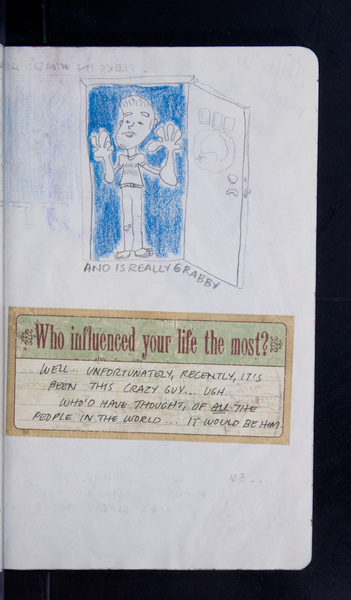 AND IS REALLY GRABBY
Who influenced your life the most?
WELL... UNFORTUNATELY, RECENTLY, IT'S
BEEN THIS CRAZY GUY... UGH.
WHO'D HAVE THOUGHT, OF ALL THE
PEOPLE IN THE WORLD... IT WOULD BE HIM